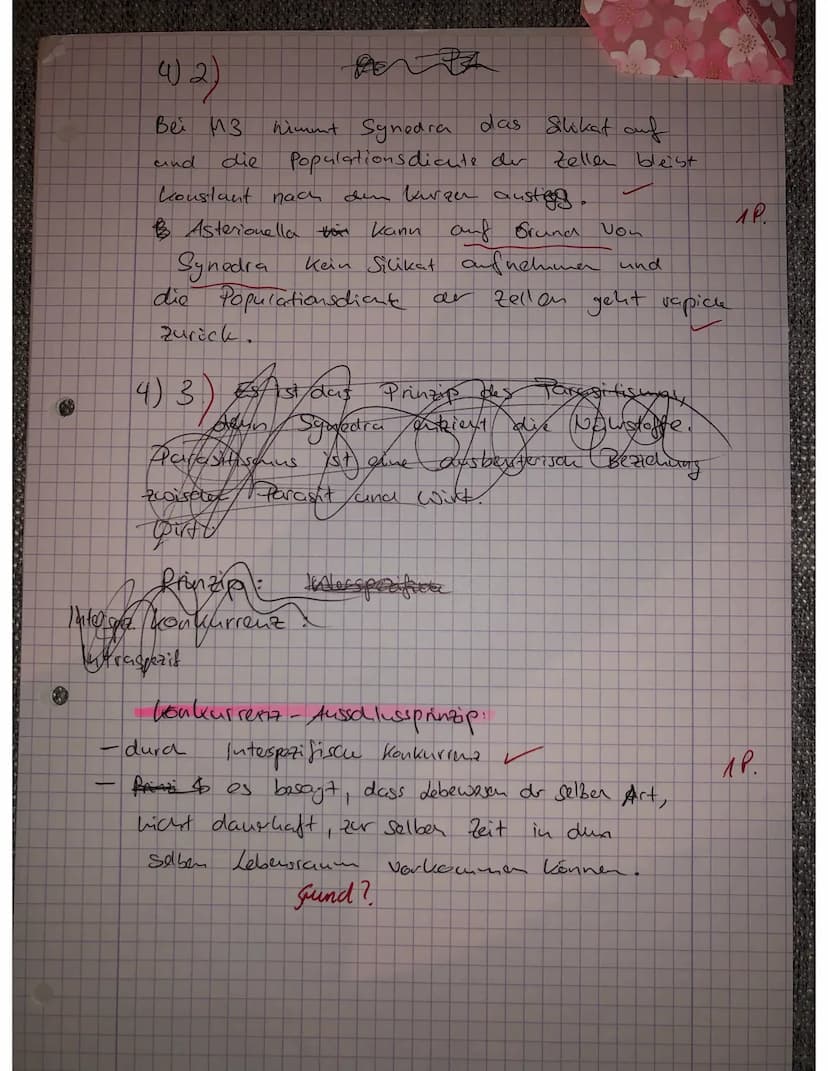 4) 2)
Bei M3 nimmt Synedra das Silikat auf
und die Populationsdichte der Zellen bleibt
konstant nach dem kurzen
1P.
Asterionella kann auf Grund von
Synedra kein Silikat aufnehmen und
die Populationsdichte der Zellen geht rapide
zurück.
4) 3) Es ist das Prinzip des Parasitismus,
denn Synedra entzieht die Nährstoffe.
Parasitismus ist eine ausbeuterisch Beziehung
zwischen Parasit und Wirt.
Prinzip: Interspezifische
Konkurrenz:
Intraspezif
Konkurrenz - Ausschlussprinzip:
- durch Interspezifische Konkurrenz
1P.
- es besagt, dass Lebewesen der selben Art,
nicht dauerhaft, zur selben Zeit in dem
selben Lebensraum vorkommen können.
Grund?